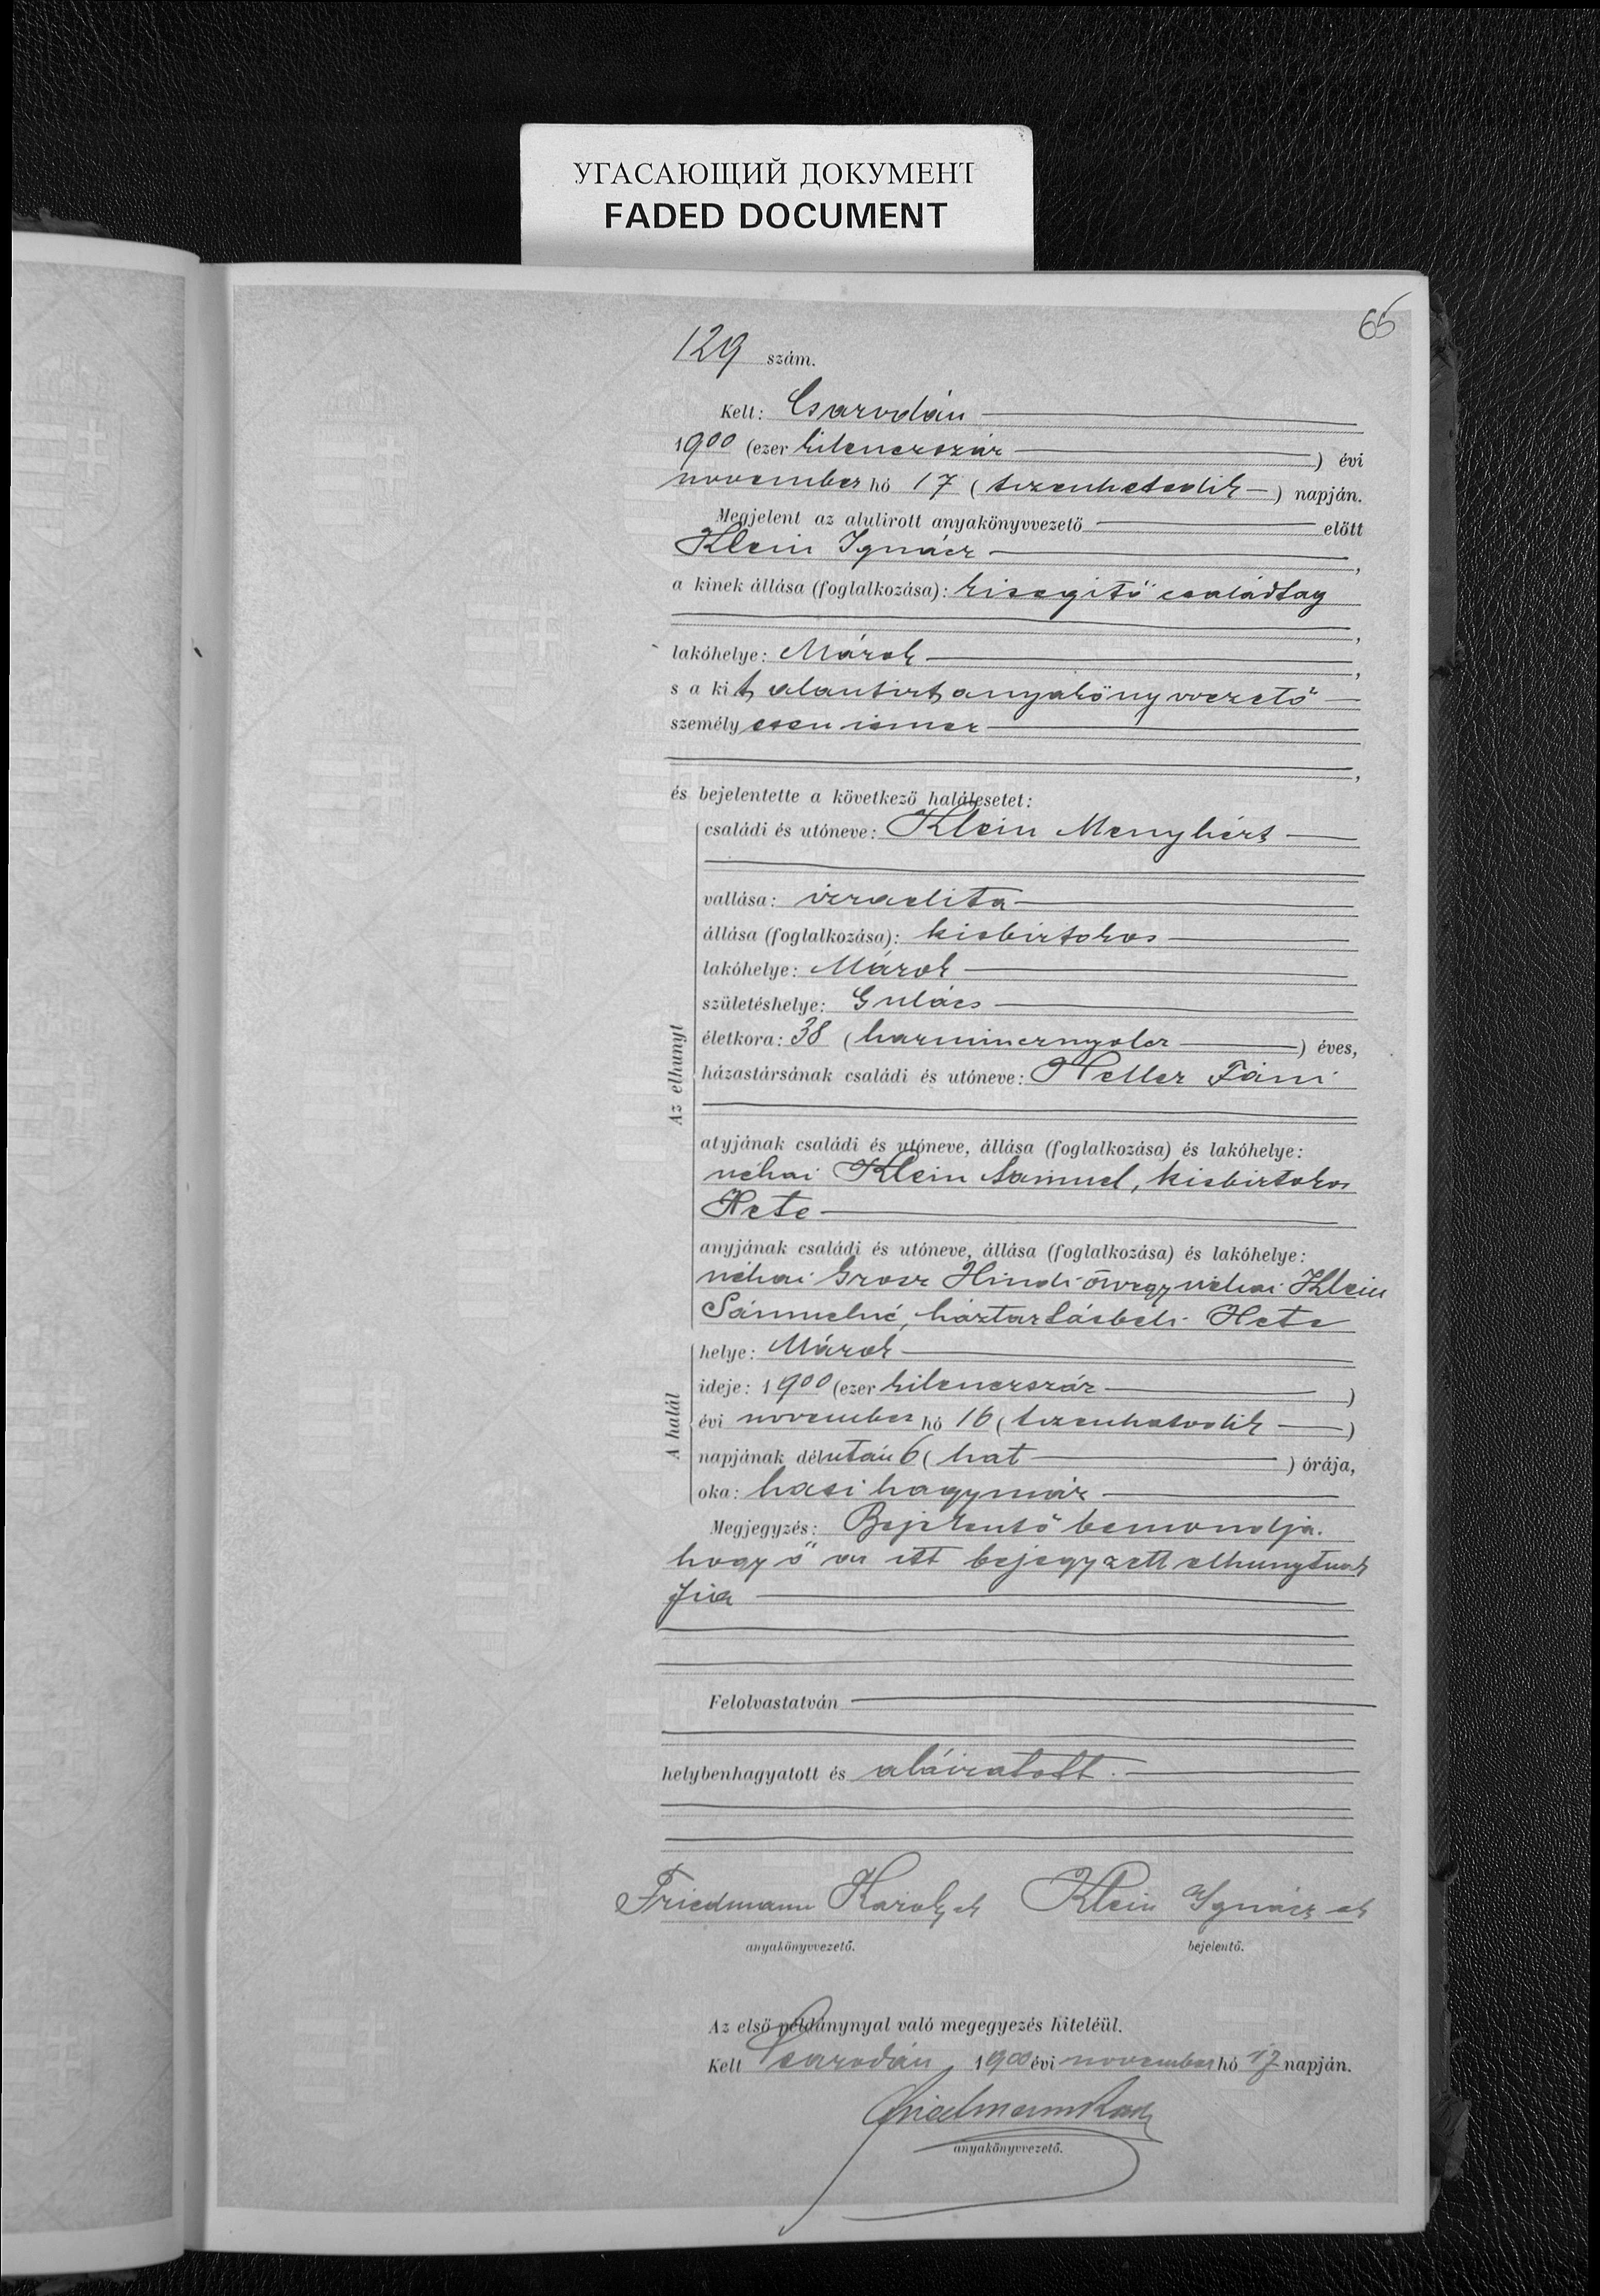 УГАСАЮЩИЙ ДОКУМЕНТ
FADED DOCUMENT
65
129 szám.
Kelt: Csarodán
1900 (ezer kilenczszáz) évi
november hó 17 (tizenhetedik) napján.
Megjelent az alulirott anyakönyvvezető előtt
Klein Ignácz,
a kinek állása (foglalkozása): kisegitő családtag
,
lakóhelye: Márok,
s a kit alantirt anyakönyvvezető
személyesen ismer
,
és bejelentette a következő halálesetet:
Az elhunyt
családi és utóneve: Klein Menyhért
vallása: izraelita
állása (foglalkozása): kisbirtokos
lakóhelye: Márok
születéshelye: Gulács
életkora: 38 (harmincznyolcz) éves,
házastársának családi és utóneve: Heller Fáni
atyjának családi és utóneve, állása (foglalkozása) és lakóhelye:
néhai Klein Sámuel, kisbirtokos
Hete
anyjának családi és utóneve, állása (foglalkozása) és lakóhelye:
néhai Grosz Hindi özvegy néhai Klein
Sámuelné, háztartásbeli Hete
A halál
helye: Márok
ideje: 1900 (ezer kilenczszáz)
évi november hó 16 (tizenhatodik)
napjának délután 6 (hat) órája,
oka: hasi hagymáz
Megjegyzés: Bejelentő bemondja.
hogy ő az itt bejegyzett elhunytnak
fia
Felolvastatván
helybenhagyatott és aláiratott.
Friedmann Károly sk Klein Ignácz sk
anyakönyvvezető. bejelentő.
Az első példánynyal való megegyezés hiteléül.
Kelt Csarodán, 1900 évi november hó 17 napján.
Friedmann Károly
anyakönyvvezető.